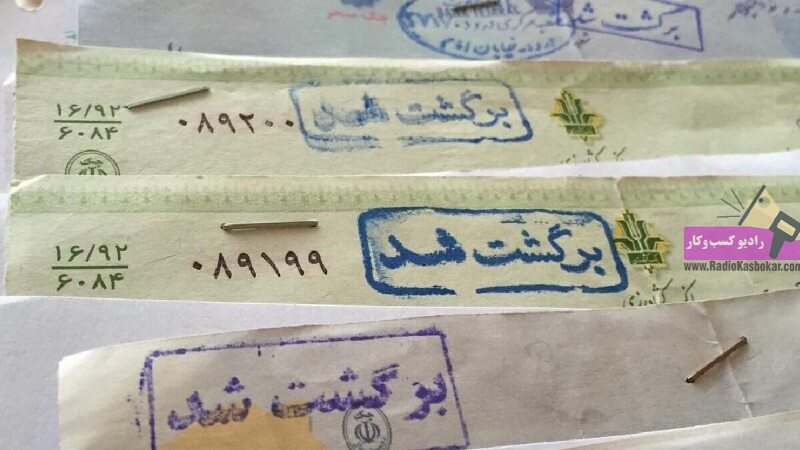 برگشت شد
چک سحر
۱۶/۹۲
۶۰۸۴
۰۸۹۲۰۰
برگشت شد
۱۶/۹۲
۶۰۸۴
۰۸۹۱۹۹
برگشت شد
رادیو کسب و کار
www.RadioKasbokar.com
برگشت شد